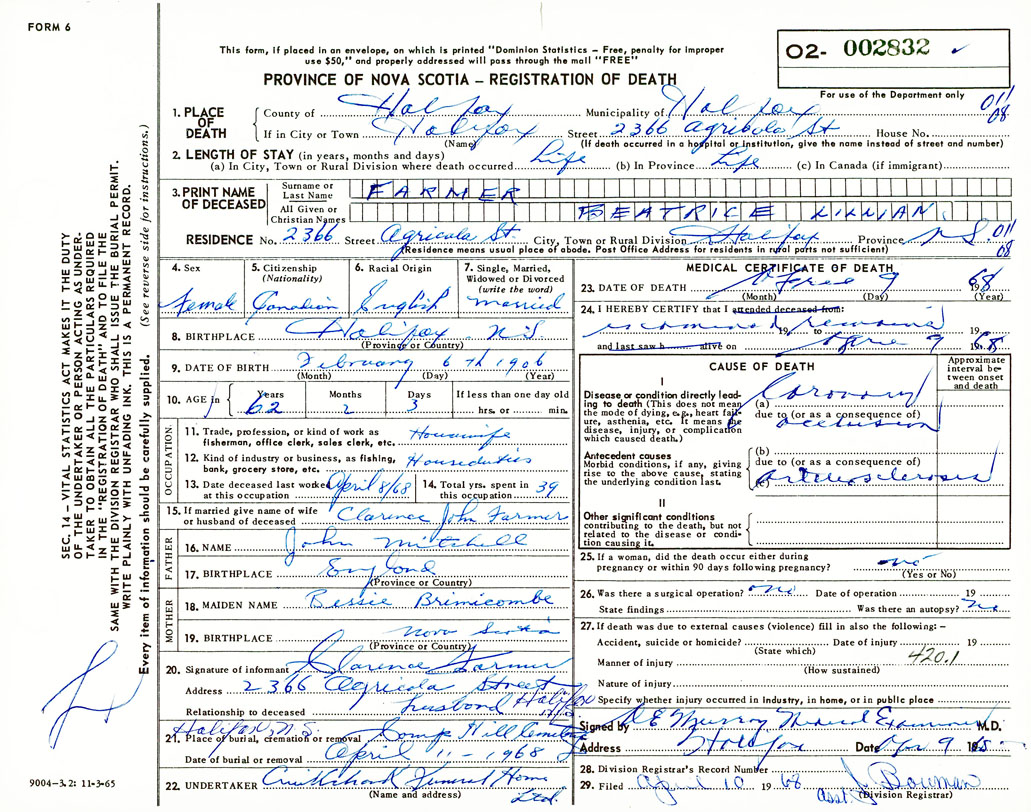 FORM 6
This form, if placed in an envelope, on which is printed "Dominion Statistics – Free, penalty for improper
use $50," and properly addressed will pass through the mail "FREE"
PROVINCE OF NOVA SCOTIA – REGISTRATION OF DEATH
O2- 002832 ✓
For use of the Department only
1. PLACE OF DEATH County of Halifax Municipality of Halifax 011
If in City or Town Halifax Street 2366 Agricola St House No. 08
(Name) (If death occurred in a hospital or institution, give the name instead of street and number)
2. LENGTH OF STAY (in years, months and days)
(a) In City, Town or Rural Division where death occurred Life (b) In Province Life (c) In Canada (if immigrant)
3. PRINT NAME OF DECEASED Surname or Last Name FARMER
All Given or Christian Names BEATRICE LILLIAN
RESIDENCE No. 2366 Street Agricola St City, Town or Rural Division Halifax Province N S. 011
(Residence means usual place of abode. Post Office Address for residents in rural parts not sufficient) 08
4. Sex Female
5. Citizenship (Nationality) Canadian
6. Racial Origin English
7. Single, Married, Widowed or Divorced (write the word) married
8. BIRTHPLACE Halifax N.S.
(Province or Country)
9. DATE OF BIRTH February 6th 1906
(Month) (Day) (Year)
10. AGE in Years 62 Months 2 Days 3 If less than one day old hrs. or min.
OCCUPATION
11. Trade, profession, or kind of work as fisherman, office clerk, sales clerk, etc. Housewife
12. Kind of industry or business, as fishing, bank, grocery store, etc. Houseduties
13. Date deceased last worked at this occupation April 8/68 14. Total yrs. spent in this occupation 39
15. If married give name of wife or husband of deceased Clarence John Farmer
FATHER
16. NAME John Mitchell
17. BIRTHPLACE England
(Province or Country)
MOTHER
18. MAIDEN NAME Bessie Brimicombe
19. BIRTHPLACE Nova Scotia
(Province or Country)
20. Signature of informant Clarence Farmer
Address 2366 Agricola Street Halifax
Relationship to deceased husband
Halifax, N.S.
21. Place of burial, cremation or removal Camp Hill Cemetery
Date of burial or removal April 11 - 1968
22. UNDERTAKER Cruikshank Funeral Home Ltd.
(Name and address)
MEDICAL CERTIFICATE OF DEATH
23. DATE OF DEATH 9 1968
(Month) (Day) (Year)
24. I HEREBY CERTIFY that I attended deceased from:
19 to 19
and last saw h alive on 9 1968
CAUSE OF DEATH
Approximate interval between onset and death
I
Disease or condition directly leading to death (This does not mean the mode of dying, e.g., heart failure, asthenia, etc. It means the disease, injury, or complication which caused death.)
(a) Coronary
due to (or as a consequence of)
occlusion
Antecedent causes
Morbid conditions, if any, giving rise to the above cause, stating the underlying condition last.
(b)
due to (or as a consequence of)
(c) arteriosclerosis
II
Other significant conditions
contributing to the death, but not related to the disease or condition causing it.
25. If a woman, did the death occur either during pregnancy or within 90 days following pregnancy? no
(Yes or No)
26. Was there a surgical operation? no Date of operation 19
State findings Was there an autopsy? no
27. If death was due to external causes (violence) fill in also the following:–
Accident, suicide or homicide? Date of injury 19
(State which) 420.1
Manner of injury
(How sustained)
Nature of injury
Specify whether injury occurred in industry, in home, or in public place
Signed by Murray Medical Examiner M.D.
Address Halifax Date Apr 9 1968
28. Division Registrar's Record Number
29. Filed April 10 1968 Asst J Bowman
(Division Registrar)
SEC. 14 – VITAL STATISTICS ACT MAKES IT THE DUTY
OF THE UNDERTAKER OR PERSON ACTING AS UNDER-
TAKER TO OBTAIN ALL THE PARTICULARS REQUIRED
IN THE "REGISTRATION OF DEATH" AND TO FILE THE
SAME WITH THE DIVISION REGISTRAR WHO SHALL ISSUE THE BURIAL PERMIT.
WRITE PLAINLY WITH UNFADING INK. THIS IS A PERMANENT RECORD.
Every item of information should be carefully supplied. (See reverse side for instructions.)
9004–3.2: 11-3-65